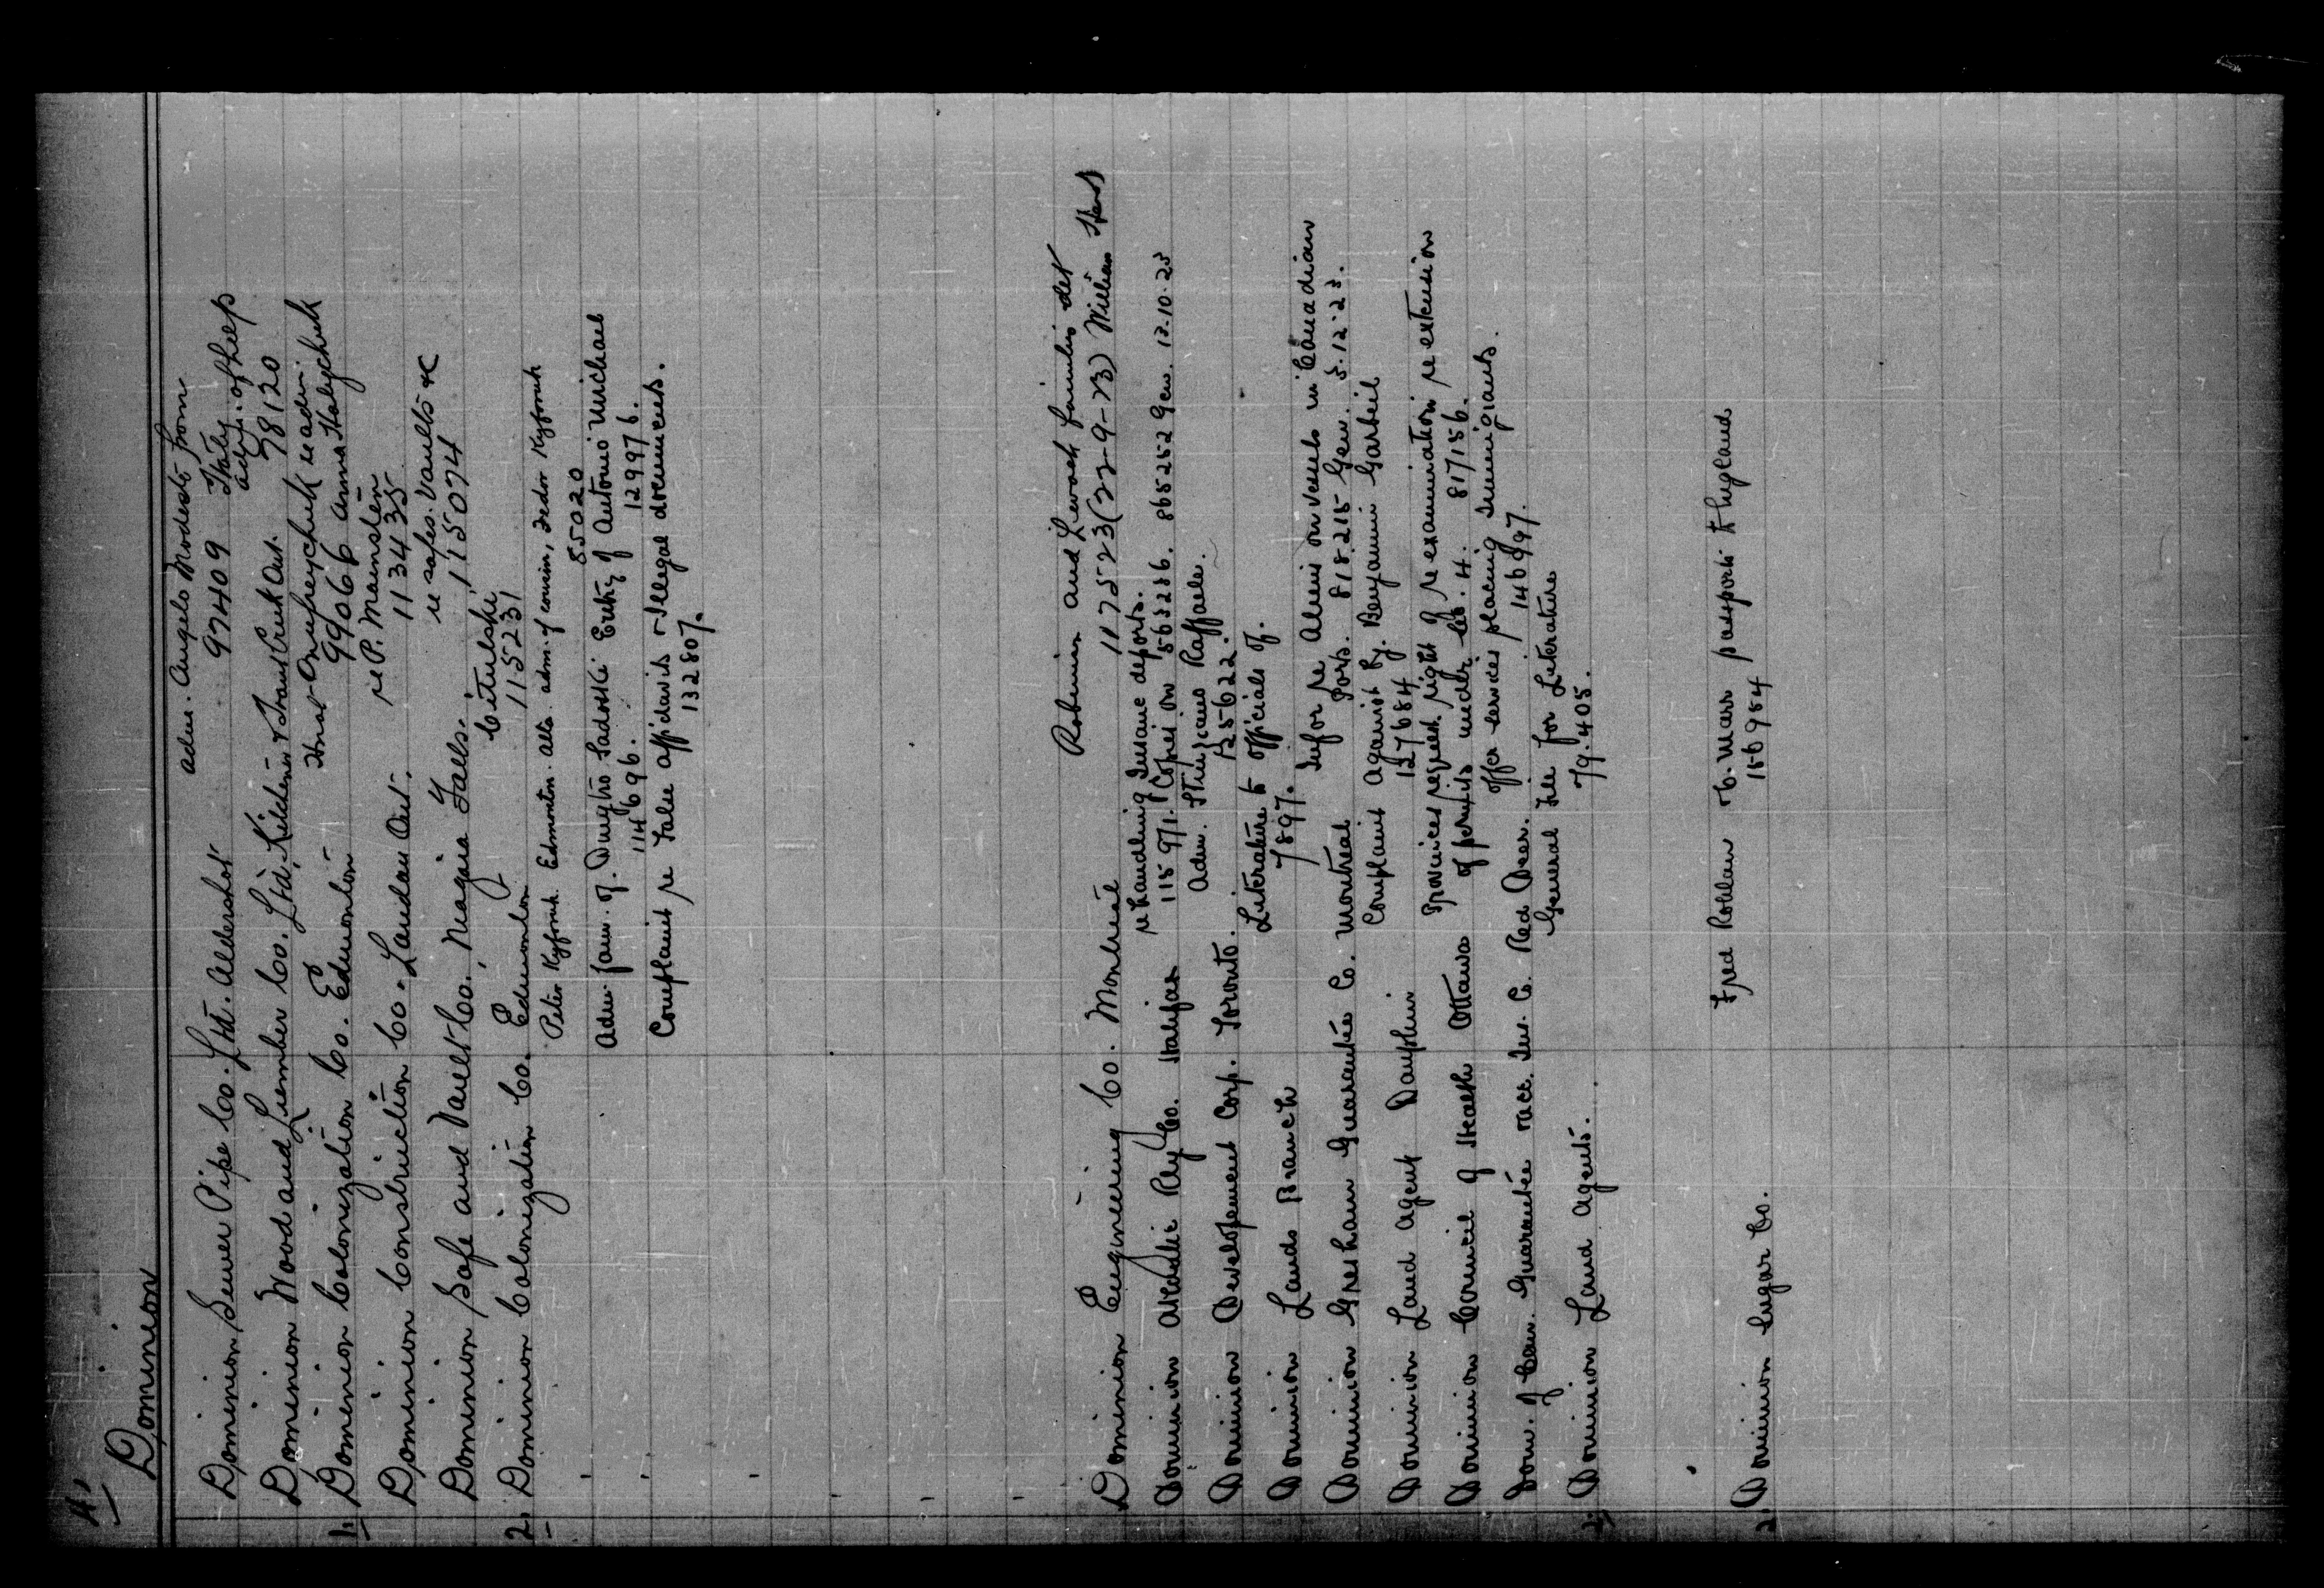 4.
Dominion
adm. Angelo Modesto from
Dominion Sewer Pipe Co. Ltd. Aldershot 97409 Italy
adm. of help
Dominion Wood and Lumber Co. Ltd, Kitchener & Trout Creek Ont. 98120
Onufreychuk re adm.
1. Dominion Colonization Co. Edmonton 99066 Anna Halaychuk
re P. Mainstén
Dominion Construction Co. Landau Ont. 113435
re safes. Vaults &c
Dominion Safe and Vault Co., Niagara Falls. 115074
Citulski
2. Dominion Colonization Co. Edmonton 115231
Peter Kyforuk Edmonton alta. adm. of cousin, Fedor Kyforuk
85020
Adm. fam. of. Dmytro Sadoski Entry of Antonio Michael
114696. 129976.
Complaint re False affidavits & illegal documents.
132807.
Robinson and families det
Dominion Engineering Co. Montreal 117523 (22-9-23) William
re handling Insane deports.
Dominion Atlantic Rly Co. Halifax 115971. Copies on 563286. 865252 Gen. 12.10.23
Adm. Raffaele.
Dominion Development Corp. Toronto. 125622.
Literature to officials of.
Dominion Lands Branch 7897.
Infor re Aliens on vessels in Canadian
Dominion Gresham Guarantee Co. Montreal Ports. 818215 Gen. 5.12.23.
Complaint against by. Benjamin Garbeil
Dominion Land Agent Dauphin 127684
Provinces request right of re examination re extension
Dominion Council of Health Ottawa of permits under Sec. 4. 817156.
offer services placing Immigrants.
Dom. of Can. Guarantee & acc. Ins. Co. Red Deer. 146997.
General File for Literature
2. Dominion Land Agents. 79.405.
Fred Roblaw passports England
2. Dominion Sugar Co. 156984